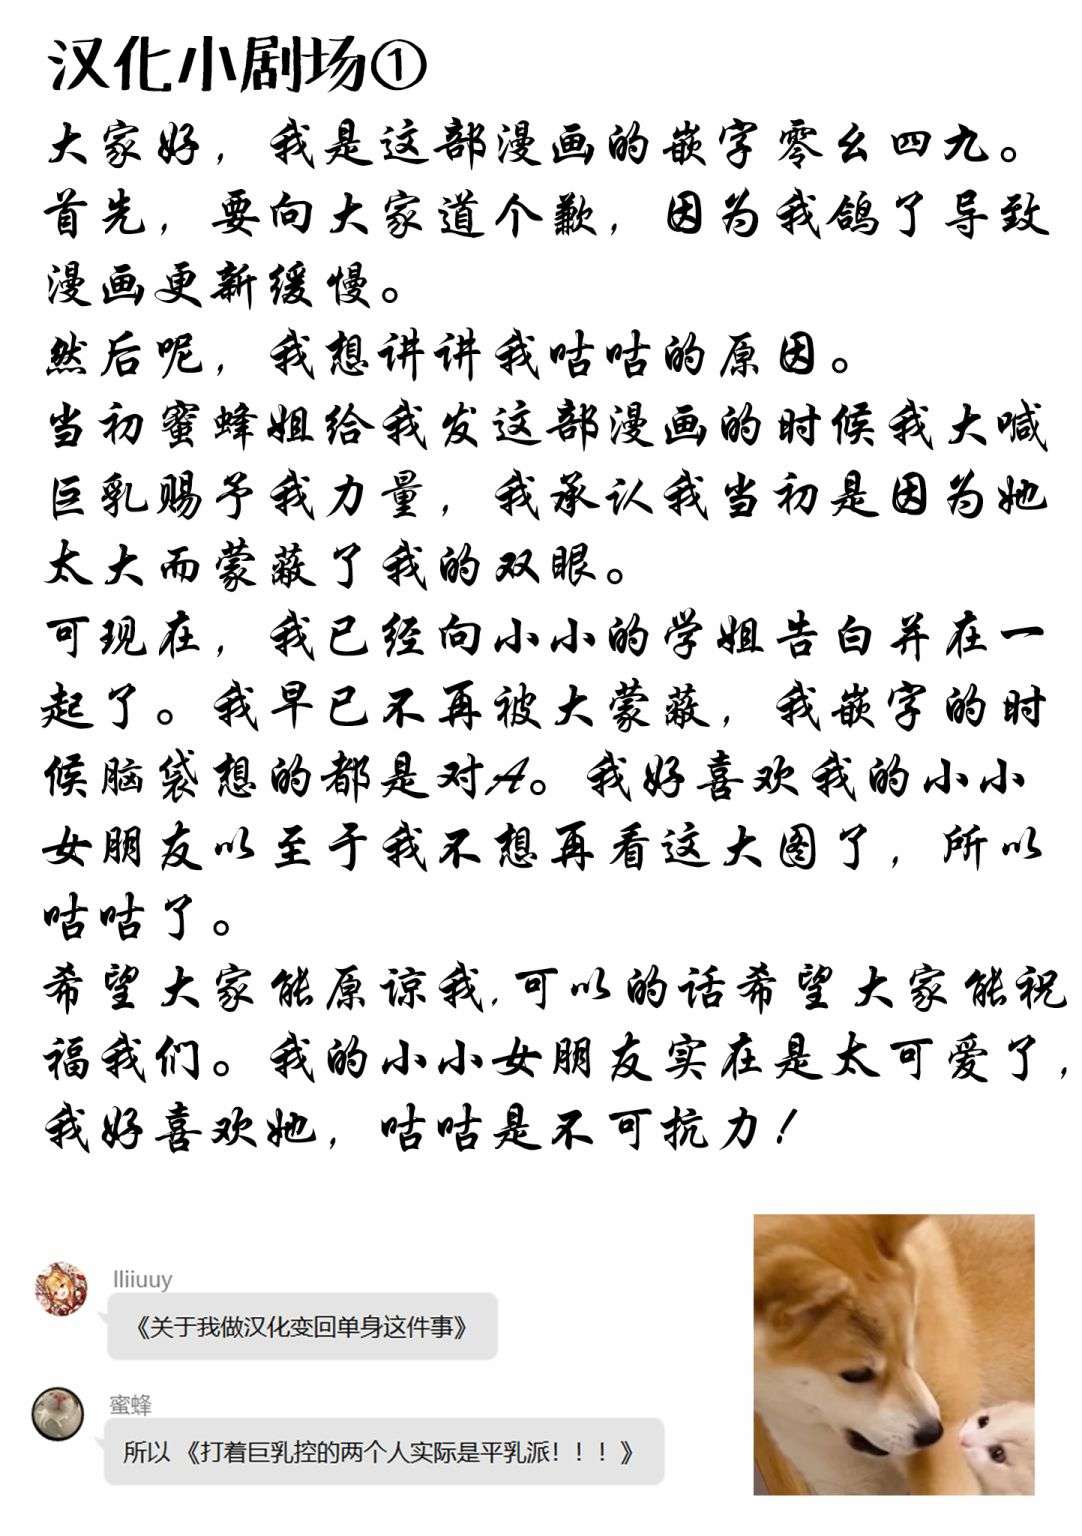 汉化小剧场①
大家好，我是这部漫画的嵌字零幺四九。
首先，要向大家道个歉，因为我鸽了导致
漫画更新缓慢。
然后呢，我想讲讲我咕咕的原因。
当初蜜蜂姐给我发这部漫画的时候我大喊
巨乳赐予我力量，我承认我当初是因为她
太大而蒙蔽了我的双眼。
可现在，我已经向小小的学姐告白并在一
起了。我早已不再被大蒙蔽，我嵌字的时
候脑袋想的都是对A。我好喜欢我的小小
女朋友以至于我不想再看这大图了，所以
咕咕了。
希望大家能原谅我,可以的话希望大家能祝
福我们。我的小小女朋友实在是太可爱了，
我好喜欢她，咕咕是不可抗力！
lliiuuy
《关于我做汉化变回单身这件事》
蜜蜂
所以 《打着巨乳控的两个人实际是平乳派！！！》